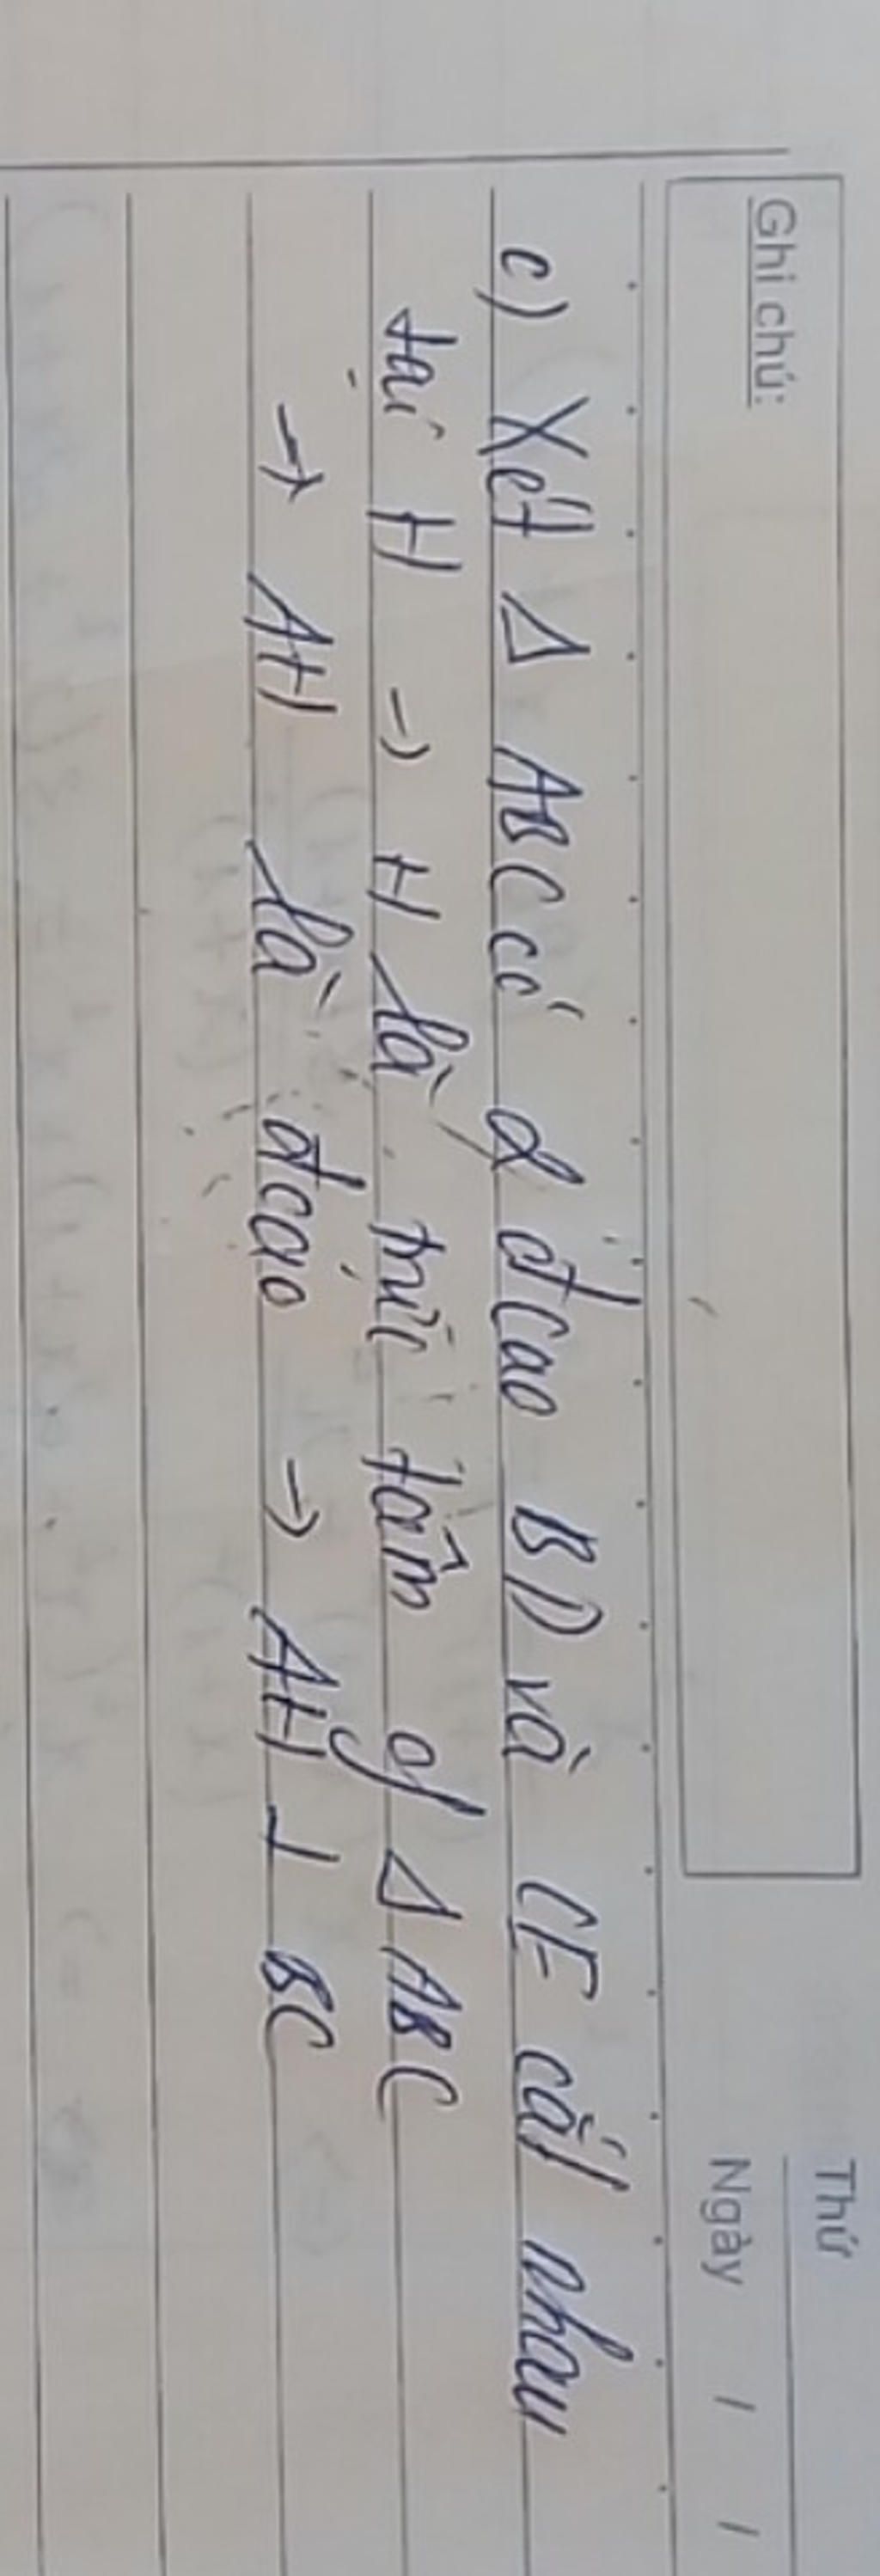 Ghi chú:
Thứ
Ngày / /
c) Xét Δ ABC có 2 đcao BD và CE cắt nhau
tại H → H là trực tâm of Δ ABC
→ AH là đcao → AH ⊥ BC